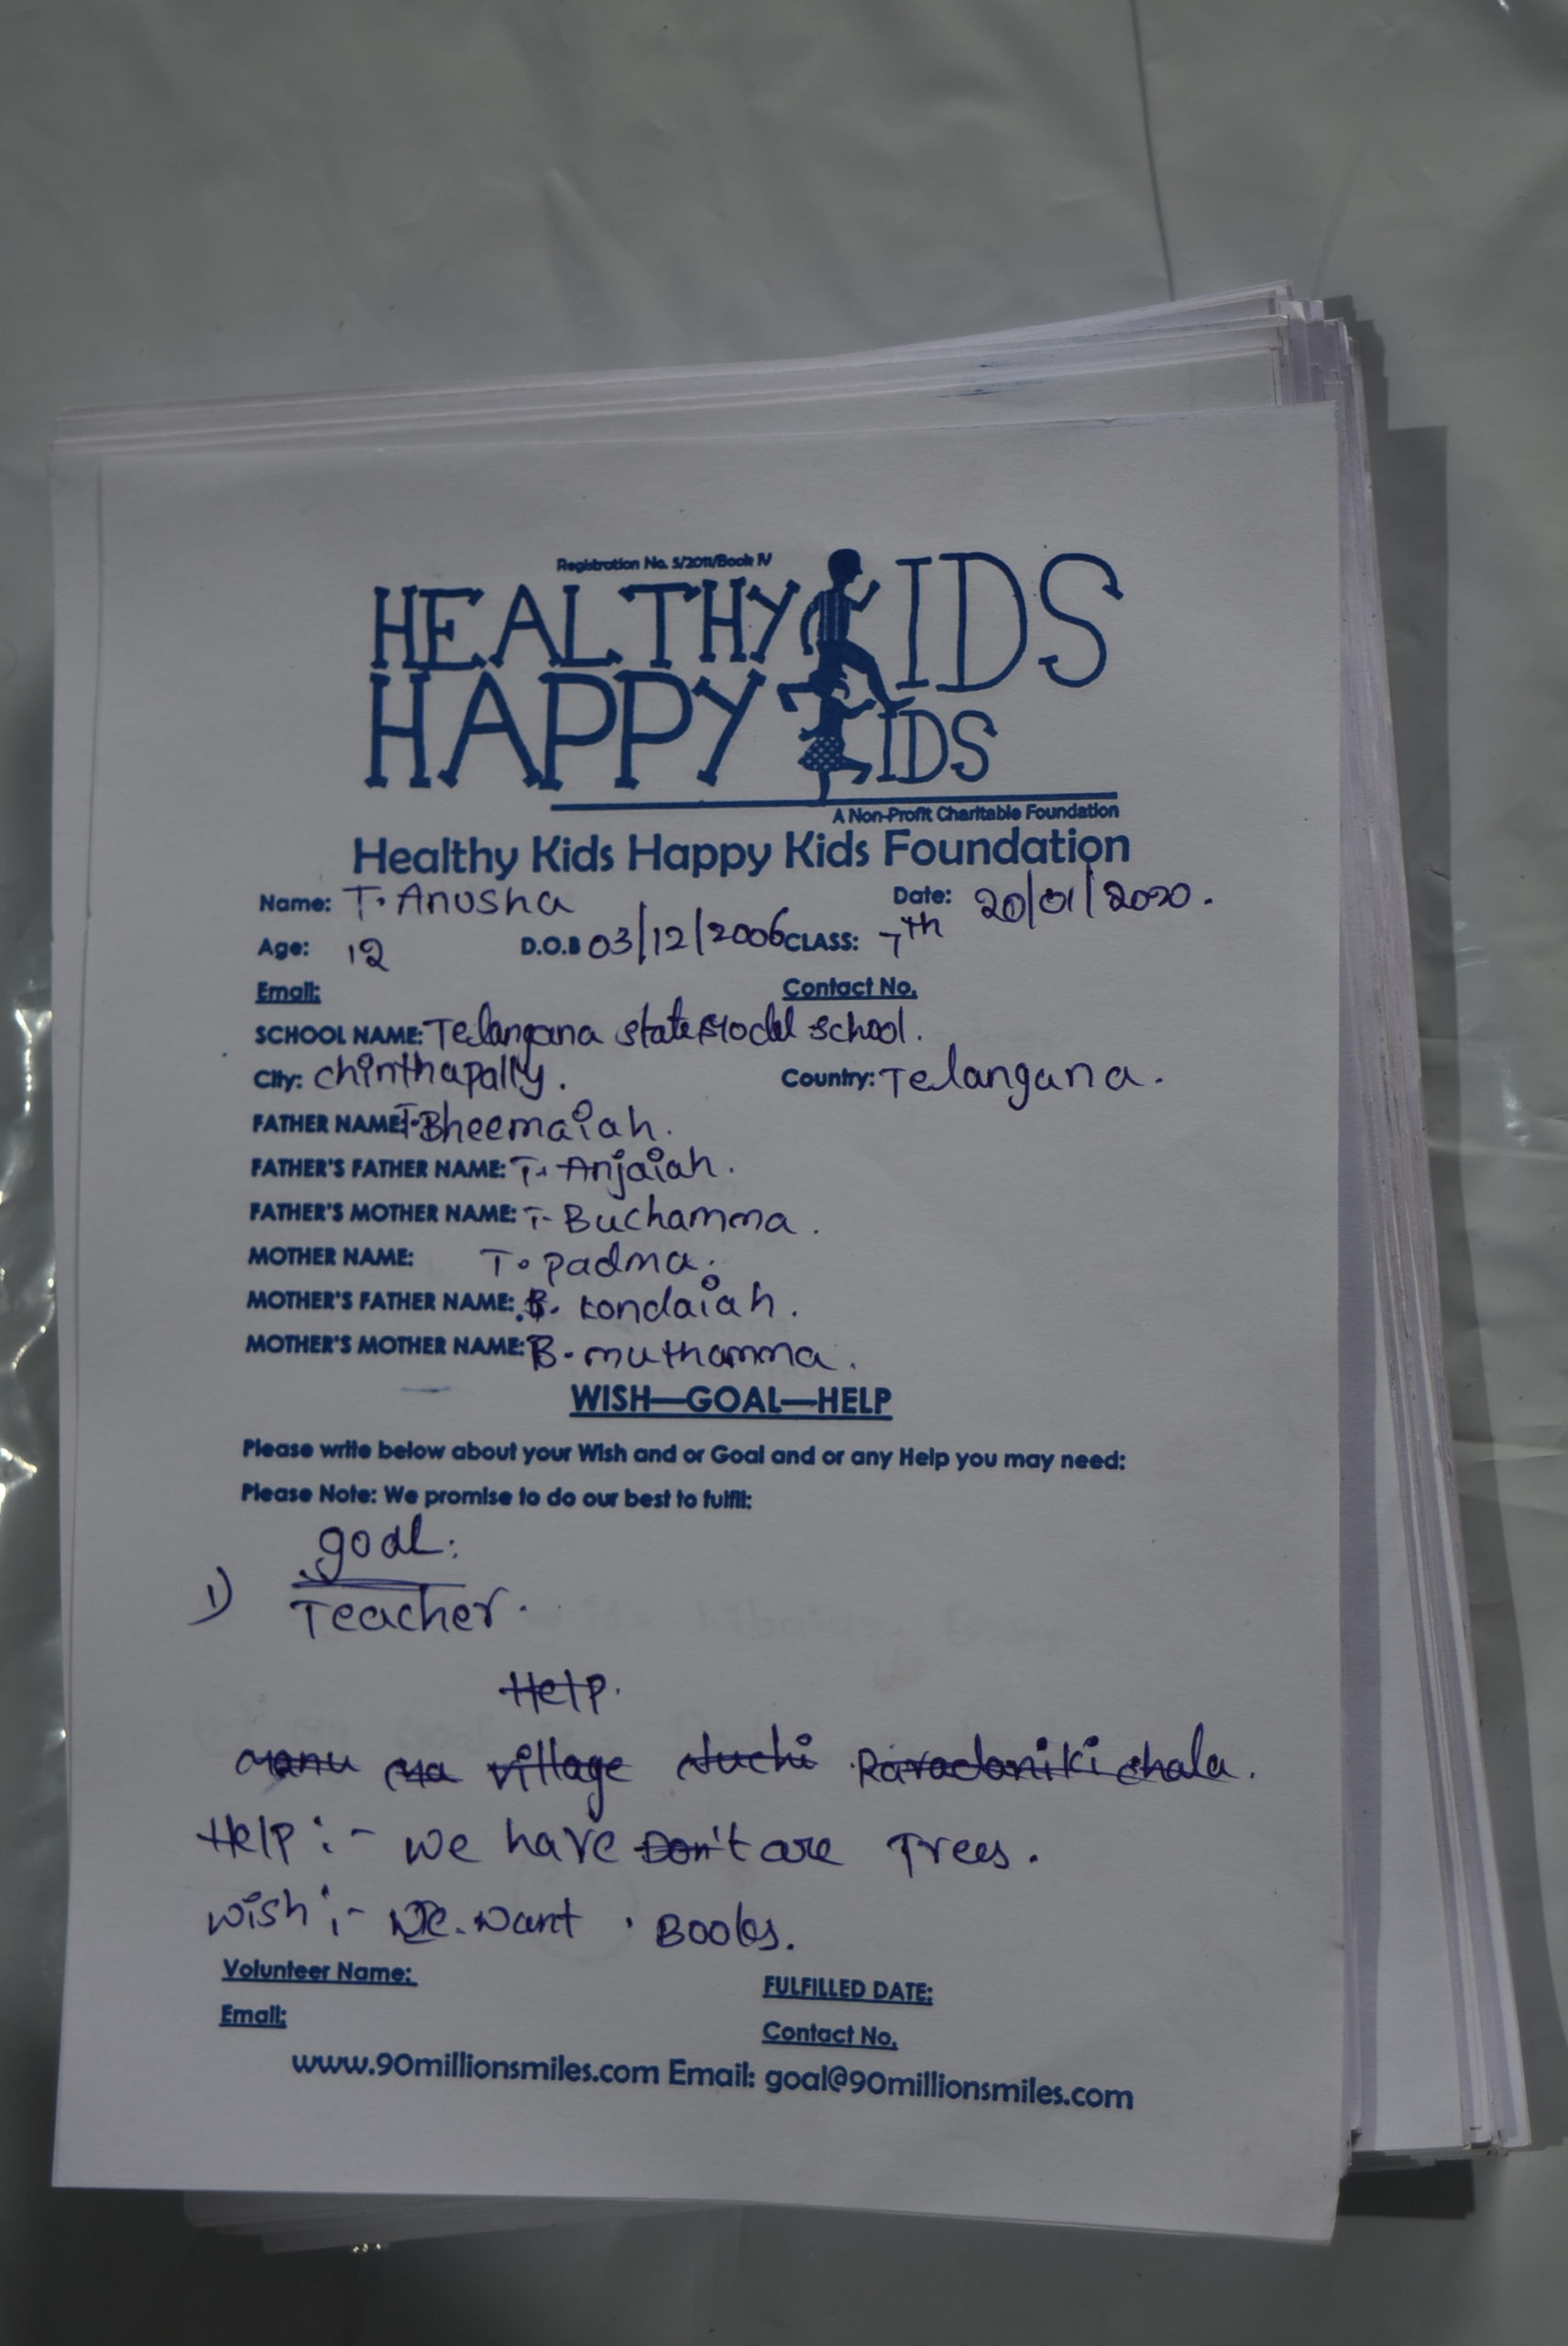 Registration No. 5/2011/Book IV
HEALTHY KIDS
HAPPY KIDS
A Non-Profit Charitable Foundation
Healthy Kids Happy Kids Foundation
Name: T. Anusha Date: 20/01/2020.
Age: 12 D.O.B 03/12/2006 CLASS: 7th
Email: Contact No.
SCHOOL NAME: Telangana state Model school.
City: chinthapally. Country: Telangana.
FATHER NAME: T. Bheemaiah.
FATHER'S FATHER NAME: T. Anjaiah.
FATHER'S MOTHER NAME: T. Buchamma.
MOTHER NAME: T. padma.
MOTHER'S FATHER NAME: B. kondaiah.
MOTHER'S MOTHER NAME: B. muthamma.
WISH—GOAL—HELP
Please write below about your Wish and or Goal and or any Help you may need:
Please Note: We promise to do our best to fulfil:
goal:
1) Teacher.
Help.
village chala.
Help :- we have Don't are Trees.
wish :- We want . Books.
Volunteer Name: FULFILLED DATE:
Email: Contact No.
www.90millionsmiles.com Email: goal@90millionsmiles.com